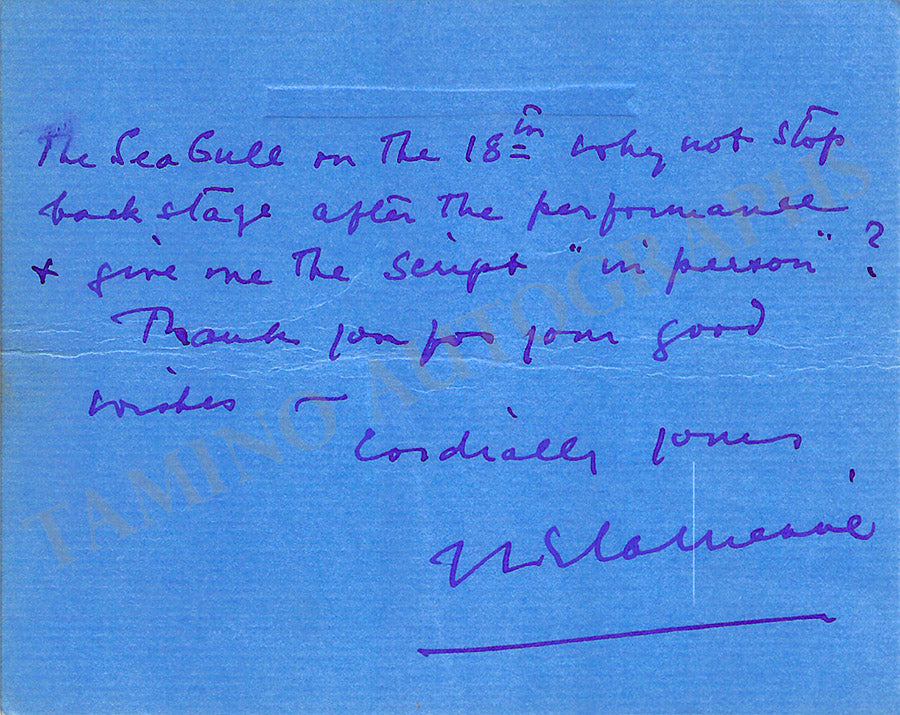 The Sea Gull on the 18th why not stop
back stage after the performance
+ give me the script "in person" ?
Thank you for your good
wishes —
Cordially yours
TAMINO AUTOGRAPHS